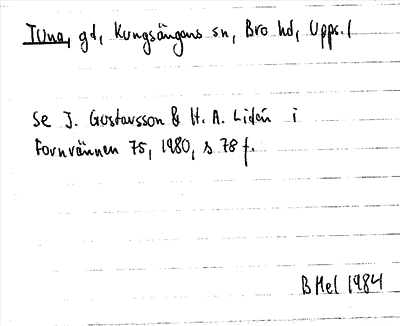 Tuna, gd, Kungsängens sn, Bro hd, Upps. l
Se J. Gustavsson & H. A. Lidén i
Fornvännen 75, 1980, s 78 f.
BHel 1984